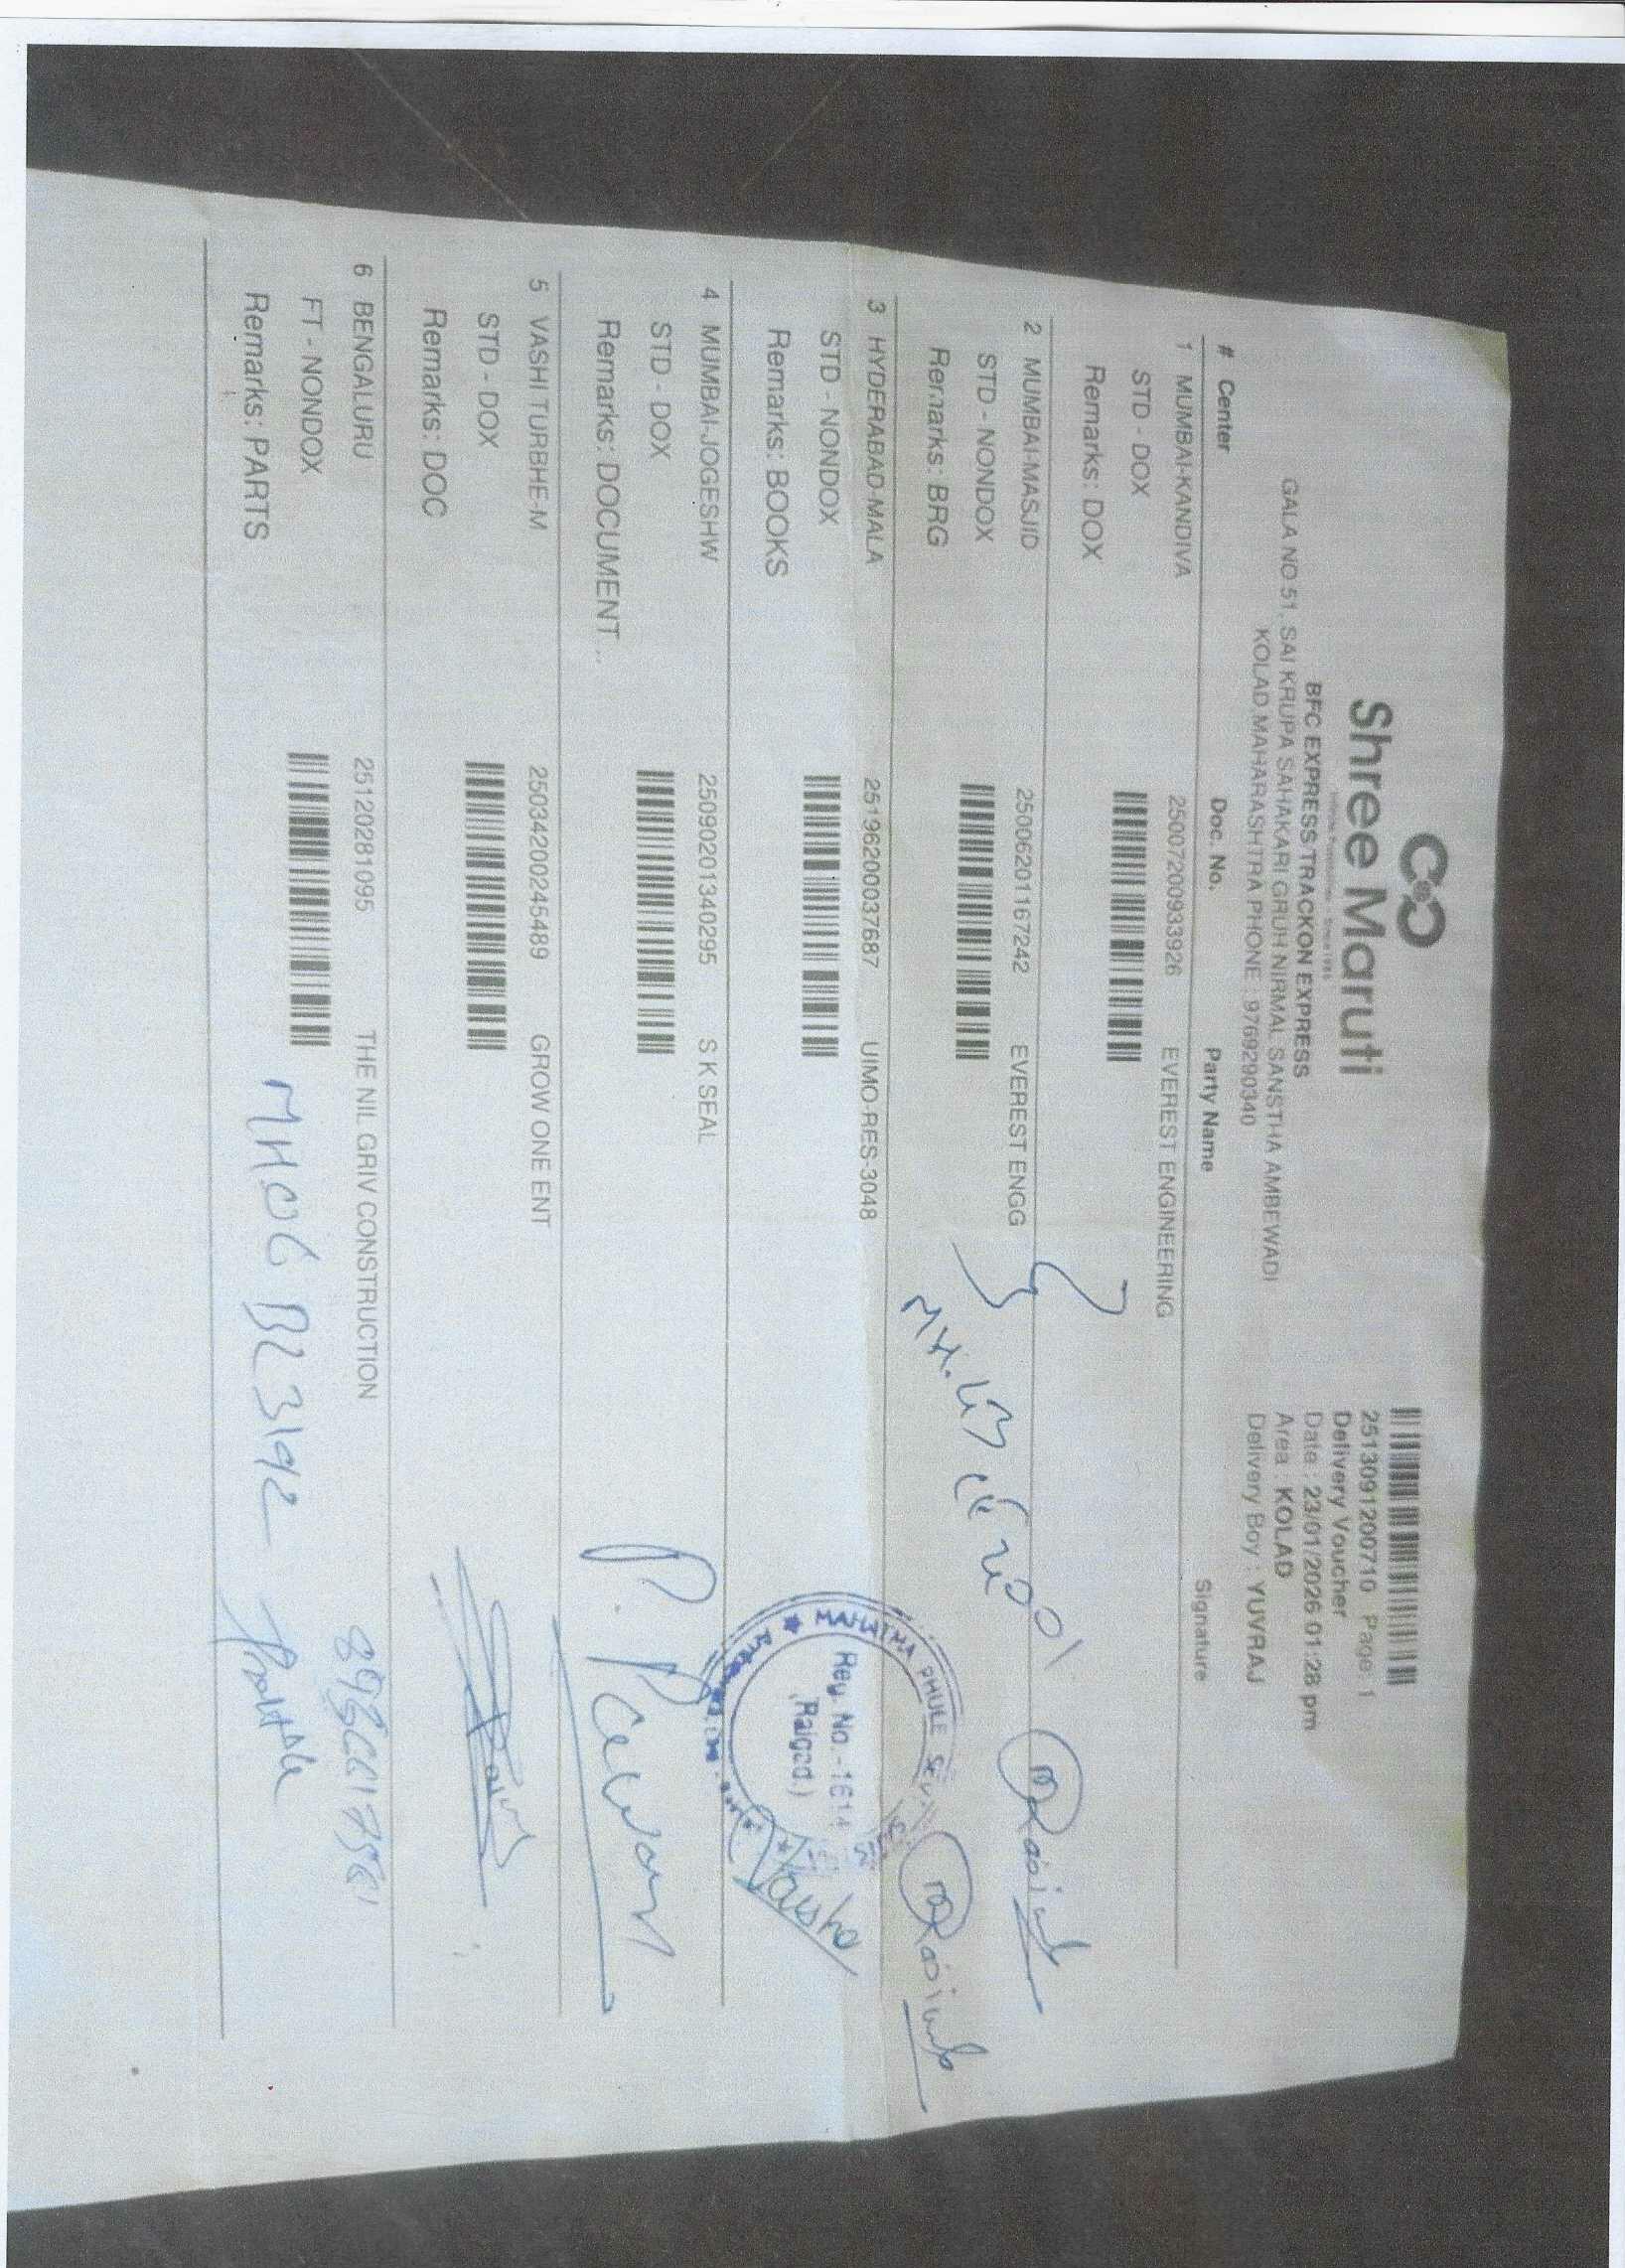 Shree Maruti
BFC EXPRESS-TRACKON EXPRESS
GALA NO 51, SAI KRUPA SAHAKARI GRUH NIRMAL SANSTHA AMBEWADI
KOLAD MAHARASHTRA PHONE : 9769290340
2513091200710 Page: 1
Delivery Voucher
Date : 23/01/2026 01:28 pm
Area : KOLAD
Delivery Boy : YUVRAJ
# Center Doc. No. Party Name Signature
1 MUMBAI-KANDIVA 25007200933926 EVEREST ENGINEERING
STD - DOX
Remarks: DOX
2 MUMBAI-MASJID 25006201167242 EVEREST ENGG
STD - NONDOX
Remarks: BRG
3 HYDERABAD-MALA 25196200037687 UIMO-RES-3048
STD - NONDOX
Remarks: BOOKS
MAHATMA PHULE
Reg. No.-1614
(Raigad.)
4 MUMBAI-JOGESHW 25090201340295 S K SEAL
STD - DOX
Remarks: DOCUMENT ..
5 VASHI TURBHE-M 25034200245489 GROW ONE ENT
STD - DOX
Remarks: DOC
6 BENGALURU 251202281095 THE NIL GRIV CONSTRUCTION
FT - NONDOX
Remarks: PARTS